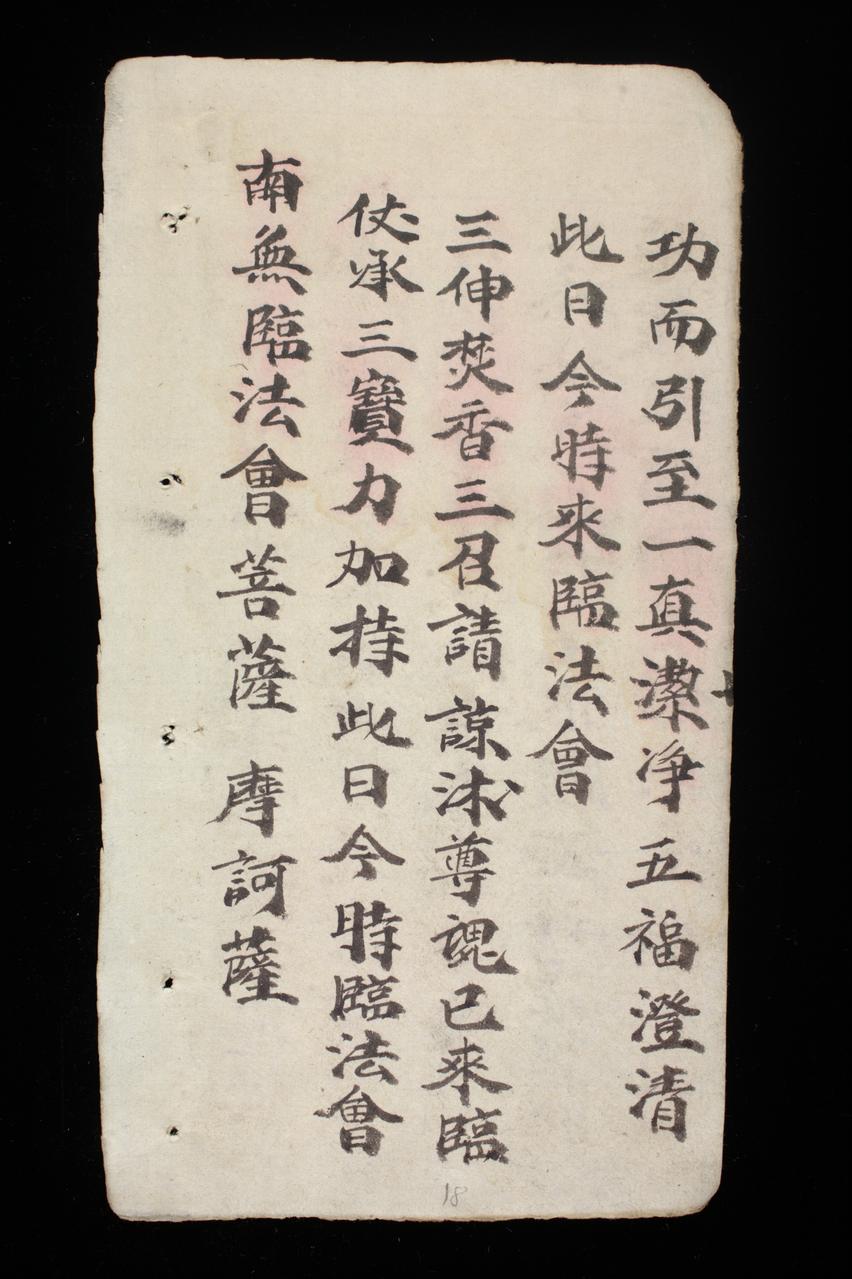 功而引至一真潔净五福澄清
此日今時來臨法會
三伸焚香三召請諒沭尊魂已來臨
仗承三寶力加持此日今時臨法會
南無臨法會菩薩摩訶薩
18